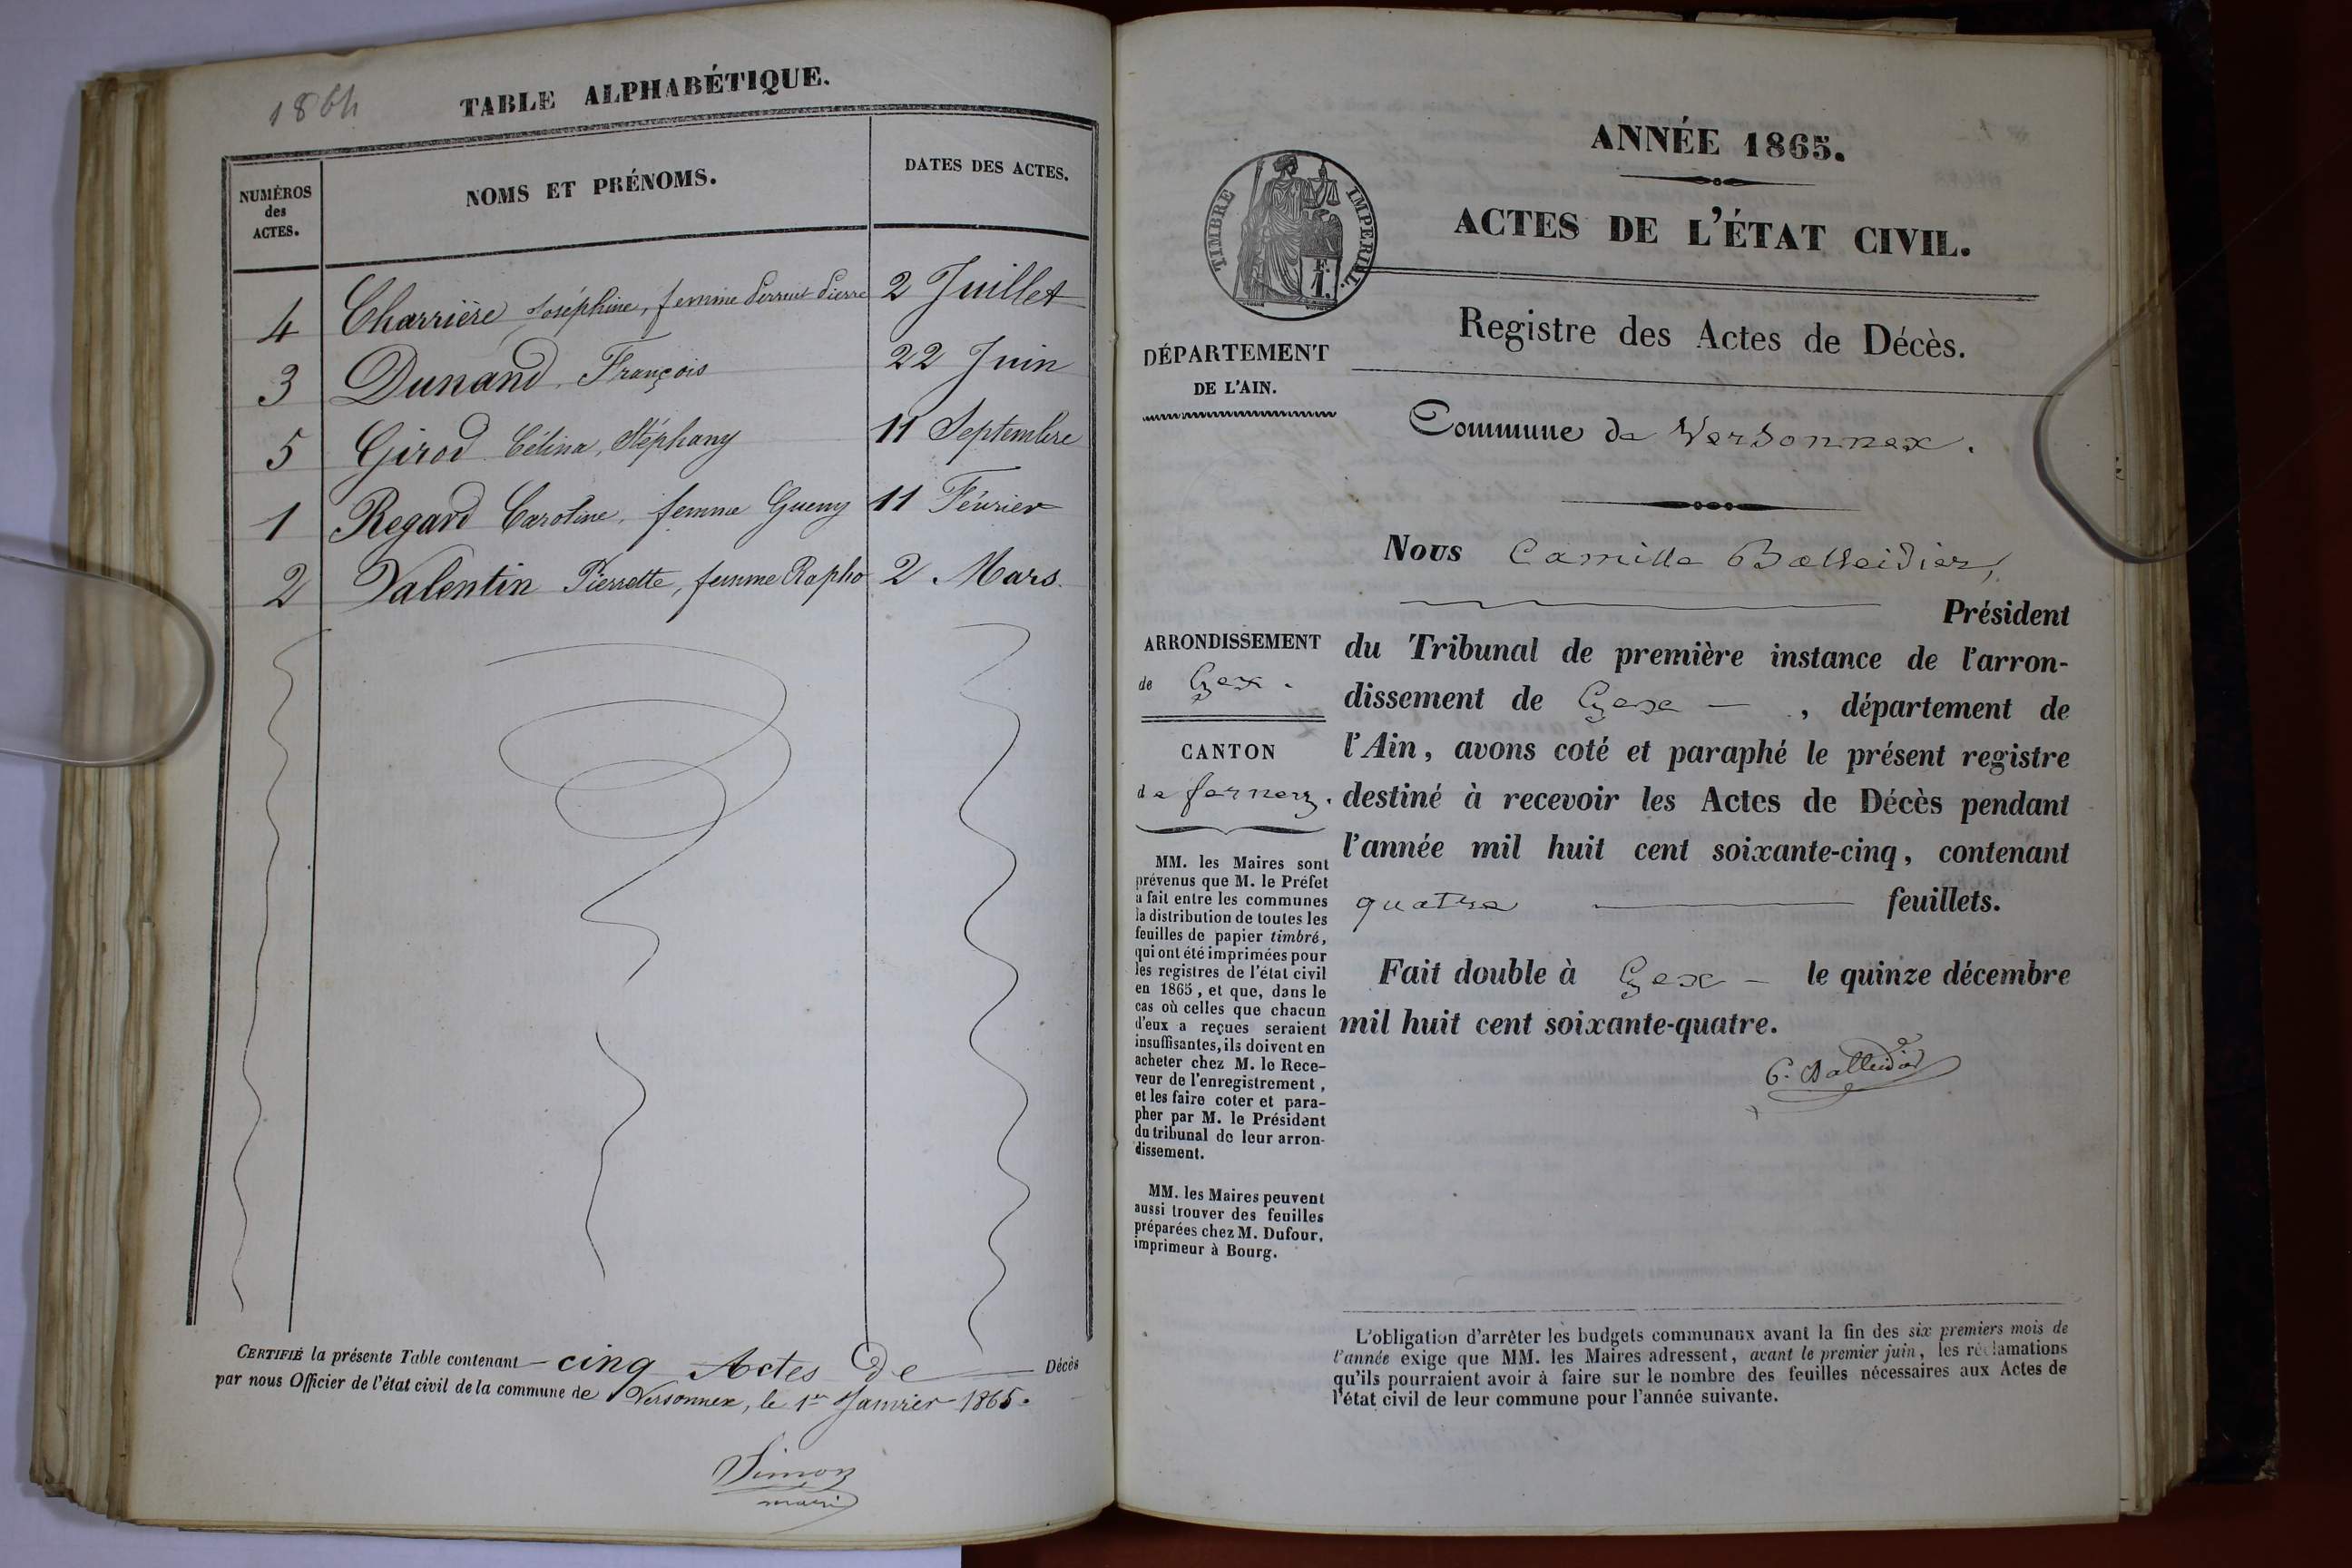 1864
TABLE ALPHABÉTIQUE.
NUMÉROS
des
ACTES.
NOMS ET PRÉNOMS.
DATES DES ACTES.
4 Charrière Joséphine, femme Perruit Pierre 2 Juillet
3 Dunand François 22 Juin
5 Girod Célina, Stéphany 11 Septembre
1 Regard Caroline, femme Gueny 11 Février
2 Valentin Pierrette, femme Rapho 2 Mars.
CERTIFIÉ la présente Table contenant cinq Actes de Décès
par nous Officier de l'état civil de la commune de Versonnex, le 1er Janvier 1865.
Simon
maire
ANNÉE 1865.
ACTES DE L'ÉTAT CIVIL.
TIMBRE IMPERIAL.
F.
1.
Registre des Actes de Décès.
DÉPARTEMENT
DE L'AIN.
Commune de Versonnex.
Nous Camille Balleidier,
Président
du Tribunal de première instance de l'arron-
dissement de Gex, département de
l'Ain, avons coté et paraphé le présent registre
destiné à recevoir les Actes de Décès pendant
l'année mil huit cent soixante-cinq, contenant
quatre feuillets.
Fait double à Gex le quinze décembre
mil huit cent soixante-quatre.
C. Balleidier
ARRONDISSEMENT
de Gex.
CANTON
de ferney.
MM. les Maires sont
prévenus que M. le Préfet
a fait entre les communes
la distribution de toutes les
feuilles de papier timbré,
qui ont été imprimées pour
les registres de l'état civil
en 1865, et que, dans le
cas où celles que chacun
d'eux a reçues seraient
insuffisantes, ils doivent en
acheter chez M. le Rece-
veur de l'enregistrement,
et les faire coter et para-
pher par M. le Président
du tribunal de leur arron-
dissement.
MM. les Maires peuvent
aussi trouver des feuilles
préparées chez M. Dufour,
imprimeur à Bourg.
L'obligation d'arrêter les budgets communaux avant la fin des six premiers mois de
l'année exige que MM. les Maires adressent, avant le premier juin, les réclamations
qu'ils pourraient avoir à faire sur le nombre des feuilles nécessaires aux Actes de
l'état civil de leur commune pour l'année suivante.